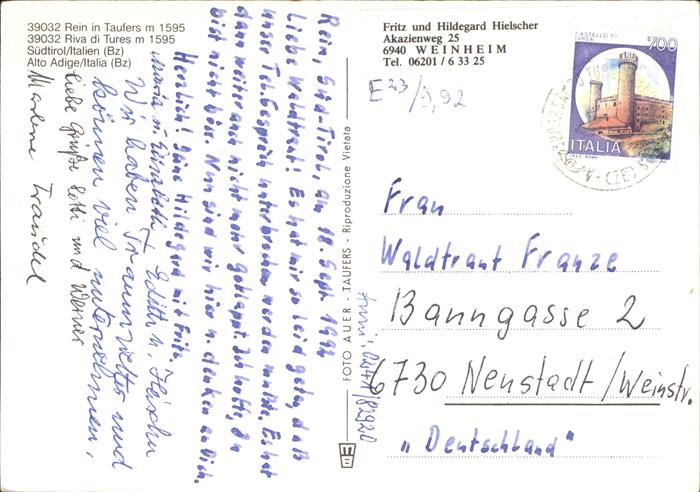 39032 Rein in Taufers m 1595
39032 Riva di Tures m 1595
Südtirol/Italien (Bz)
Alto Adige/Italia (Bz)
Rein, Süd-Tirol, am 18. Sept. 1992
Liebe Waldtraut! Es hat mir so leid getan, daß
unser Tel. Gespräch unterbrochen werden mußte. Es hat
dann weiter auch nicht mehr geklappt. Ich hoffe, Du
bist nicht böse. Nun sind wir hier u. denken an Dich.
Herzlich! Deine Hildegard mit Fritz.
Maria u. Elisabeth Edith u.
Wir haben Traumwetter und
können viel unternehmen,
Liebe Grüße Lotti und Werner
Marlene Traudel
FOTO AUER - TAUFERS - Riproduzione Vietata
Fritz und Hildegard Hielscher
Akazienweg 25
6940 WEINHEIM
Tel. 06201 / 6 33 25
E 23/9,92
CASTELLO DI
IVREA
700
ITALIA
Frau
Waldtraut Franze
Banngasse 2
6730 Neustadt/Weinstr.
„Deutschland"